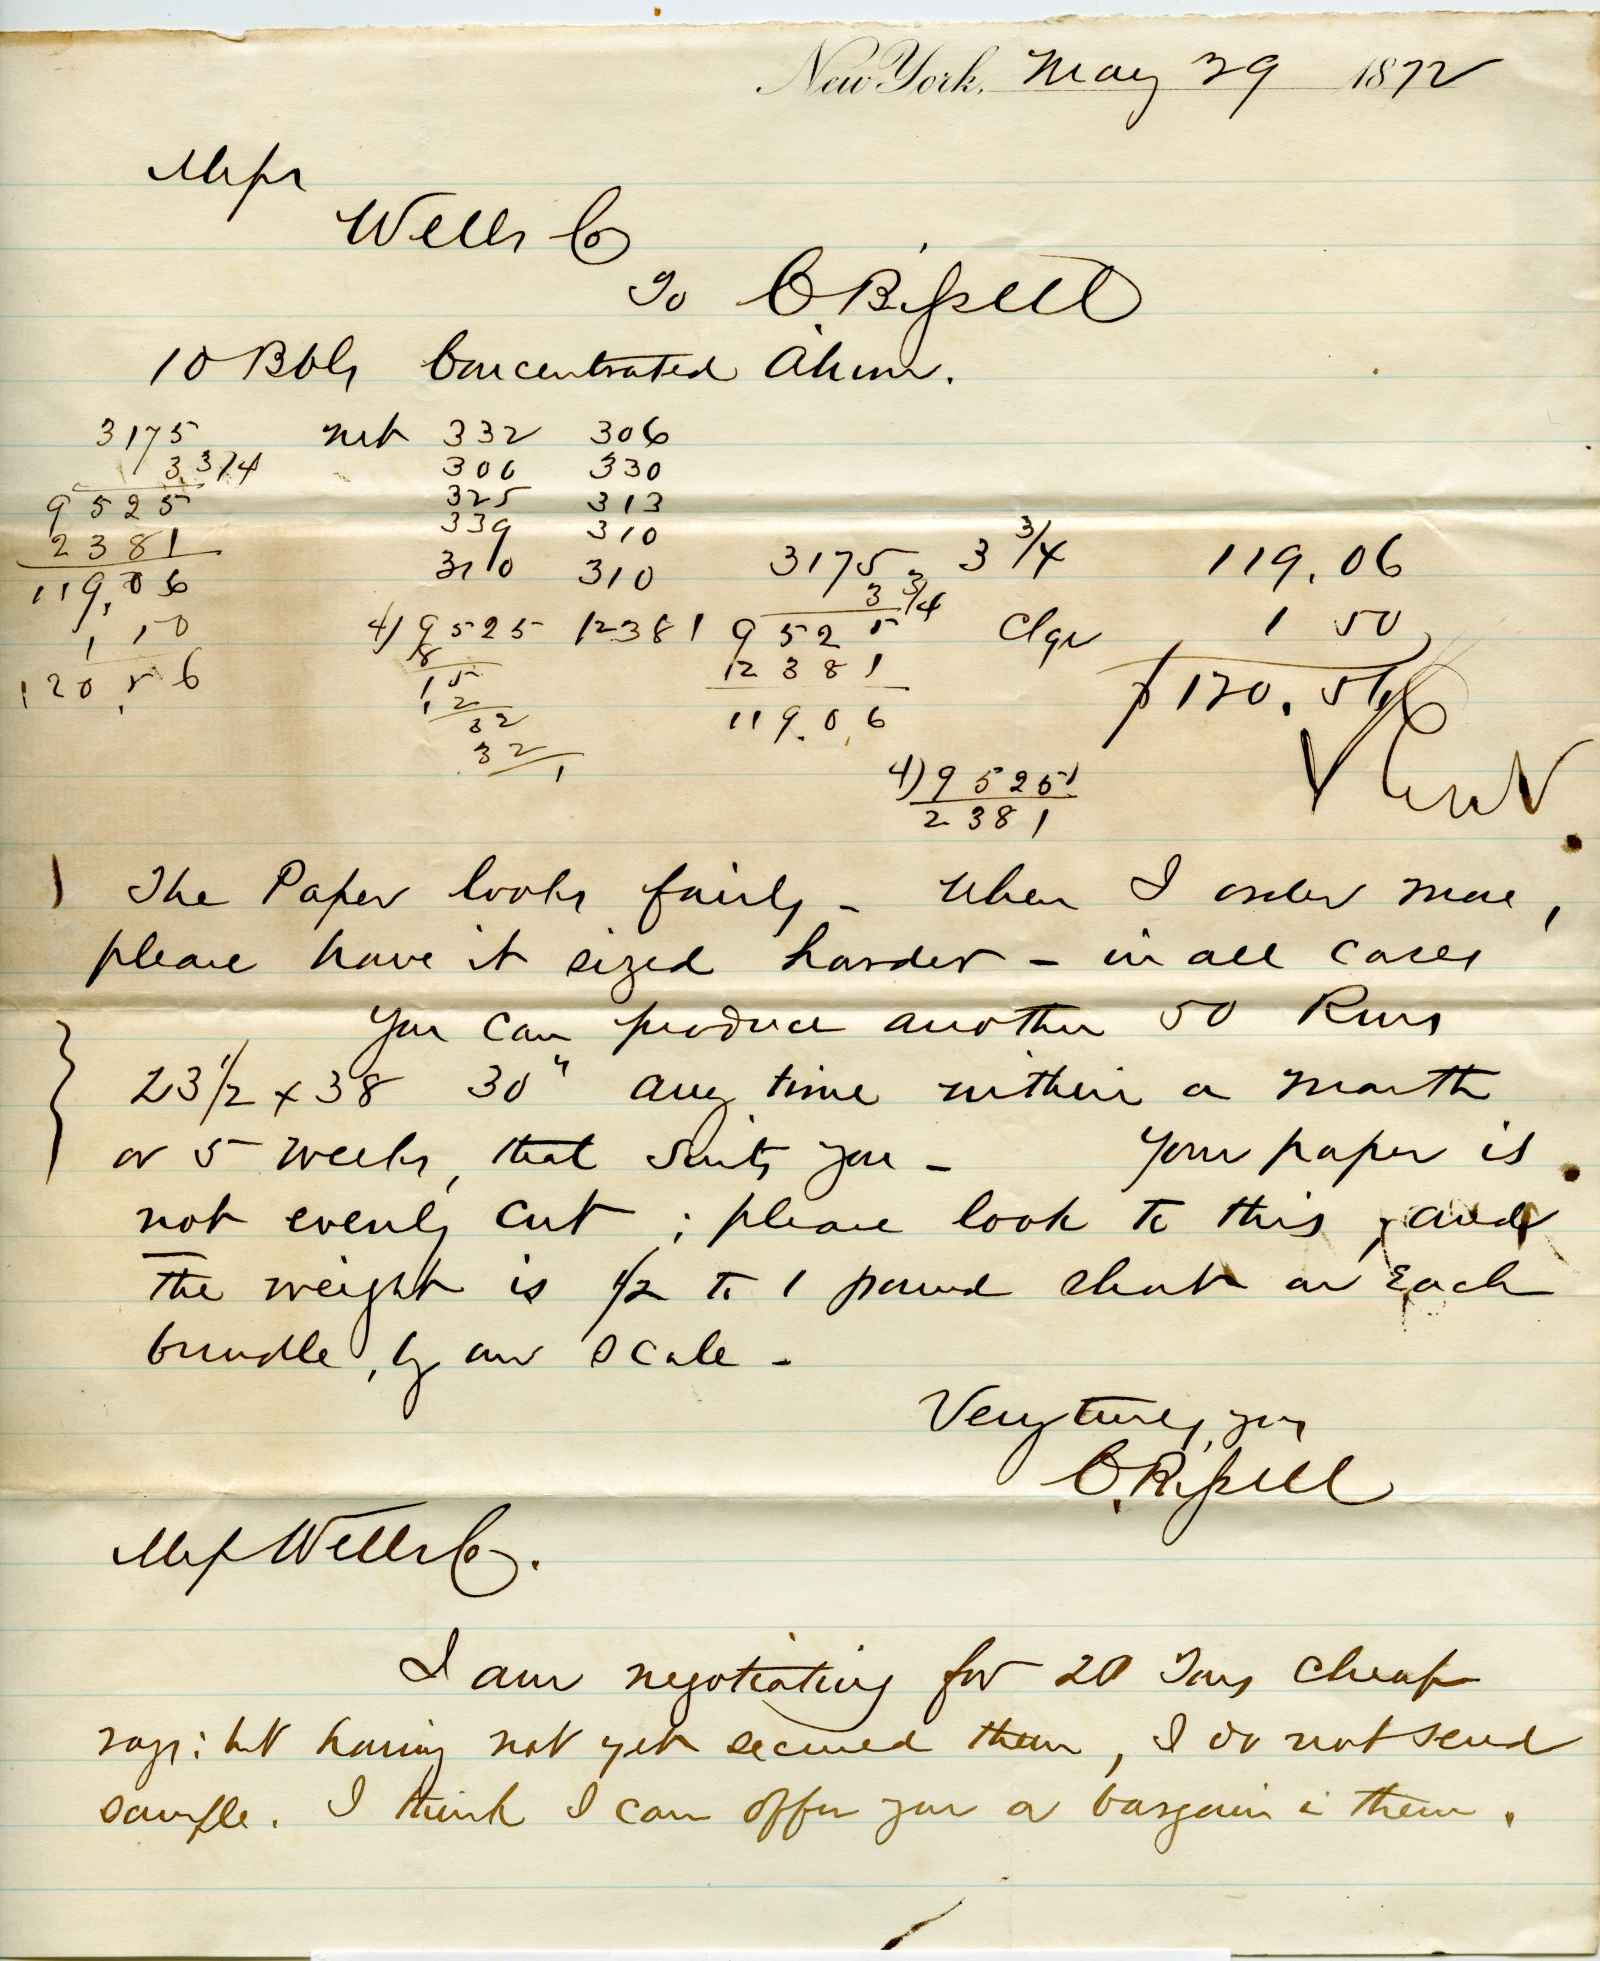 New York, May 29 1872
Messrs
Wells Co
To C Bissell
10 Bbls Concentrated Alum.
3175 net 332 306
3 3/4 306 330
9525 325 313
2381 339 310
119,06 310 310 3175 3 3/4 119.06
3 3/4
1 50 4) 9525 12381 9525 Chgs 1 50
8 12381
120.56 15 119.06 $120.56
12
32
32
1
4) 9525 1
2381
The Paper looks fairly - When I order more,
please have it sized harder - in all cases
You can produce another 50 Rms
23 1/2 x 38 30" any time within a month
or 5 weeks, that suits you - Your paper is
not evenly cut ; please look to this, and
the weight is 1/2 to 1 pound short on each
bundle, by our scale -
Very truly yrs
C. Bissell
Mess Wells Co.
I am negotiating for 20 Tons cheap
rags: but having not yet secured them, I do not send
sample. I think I can offer you a bargain in them.